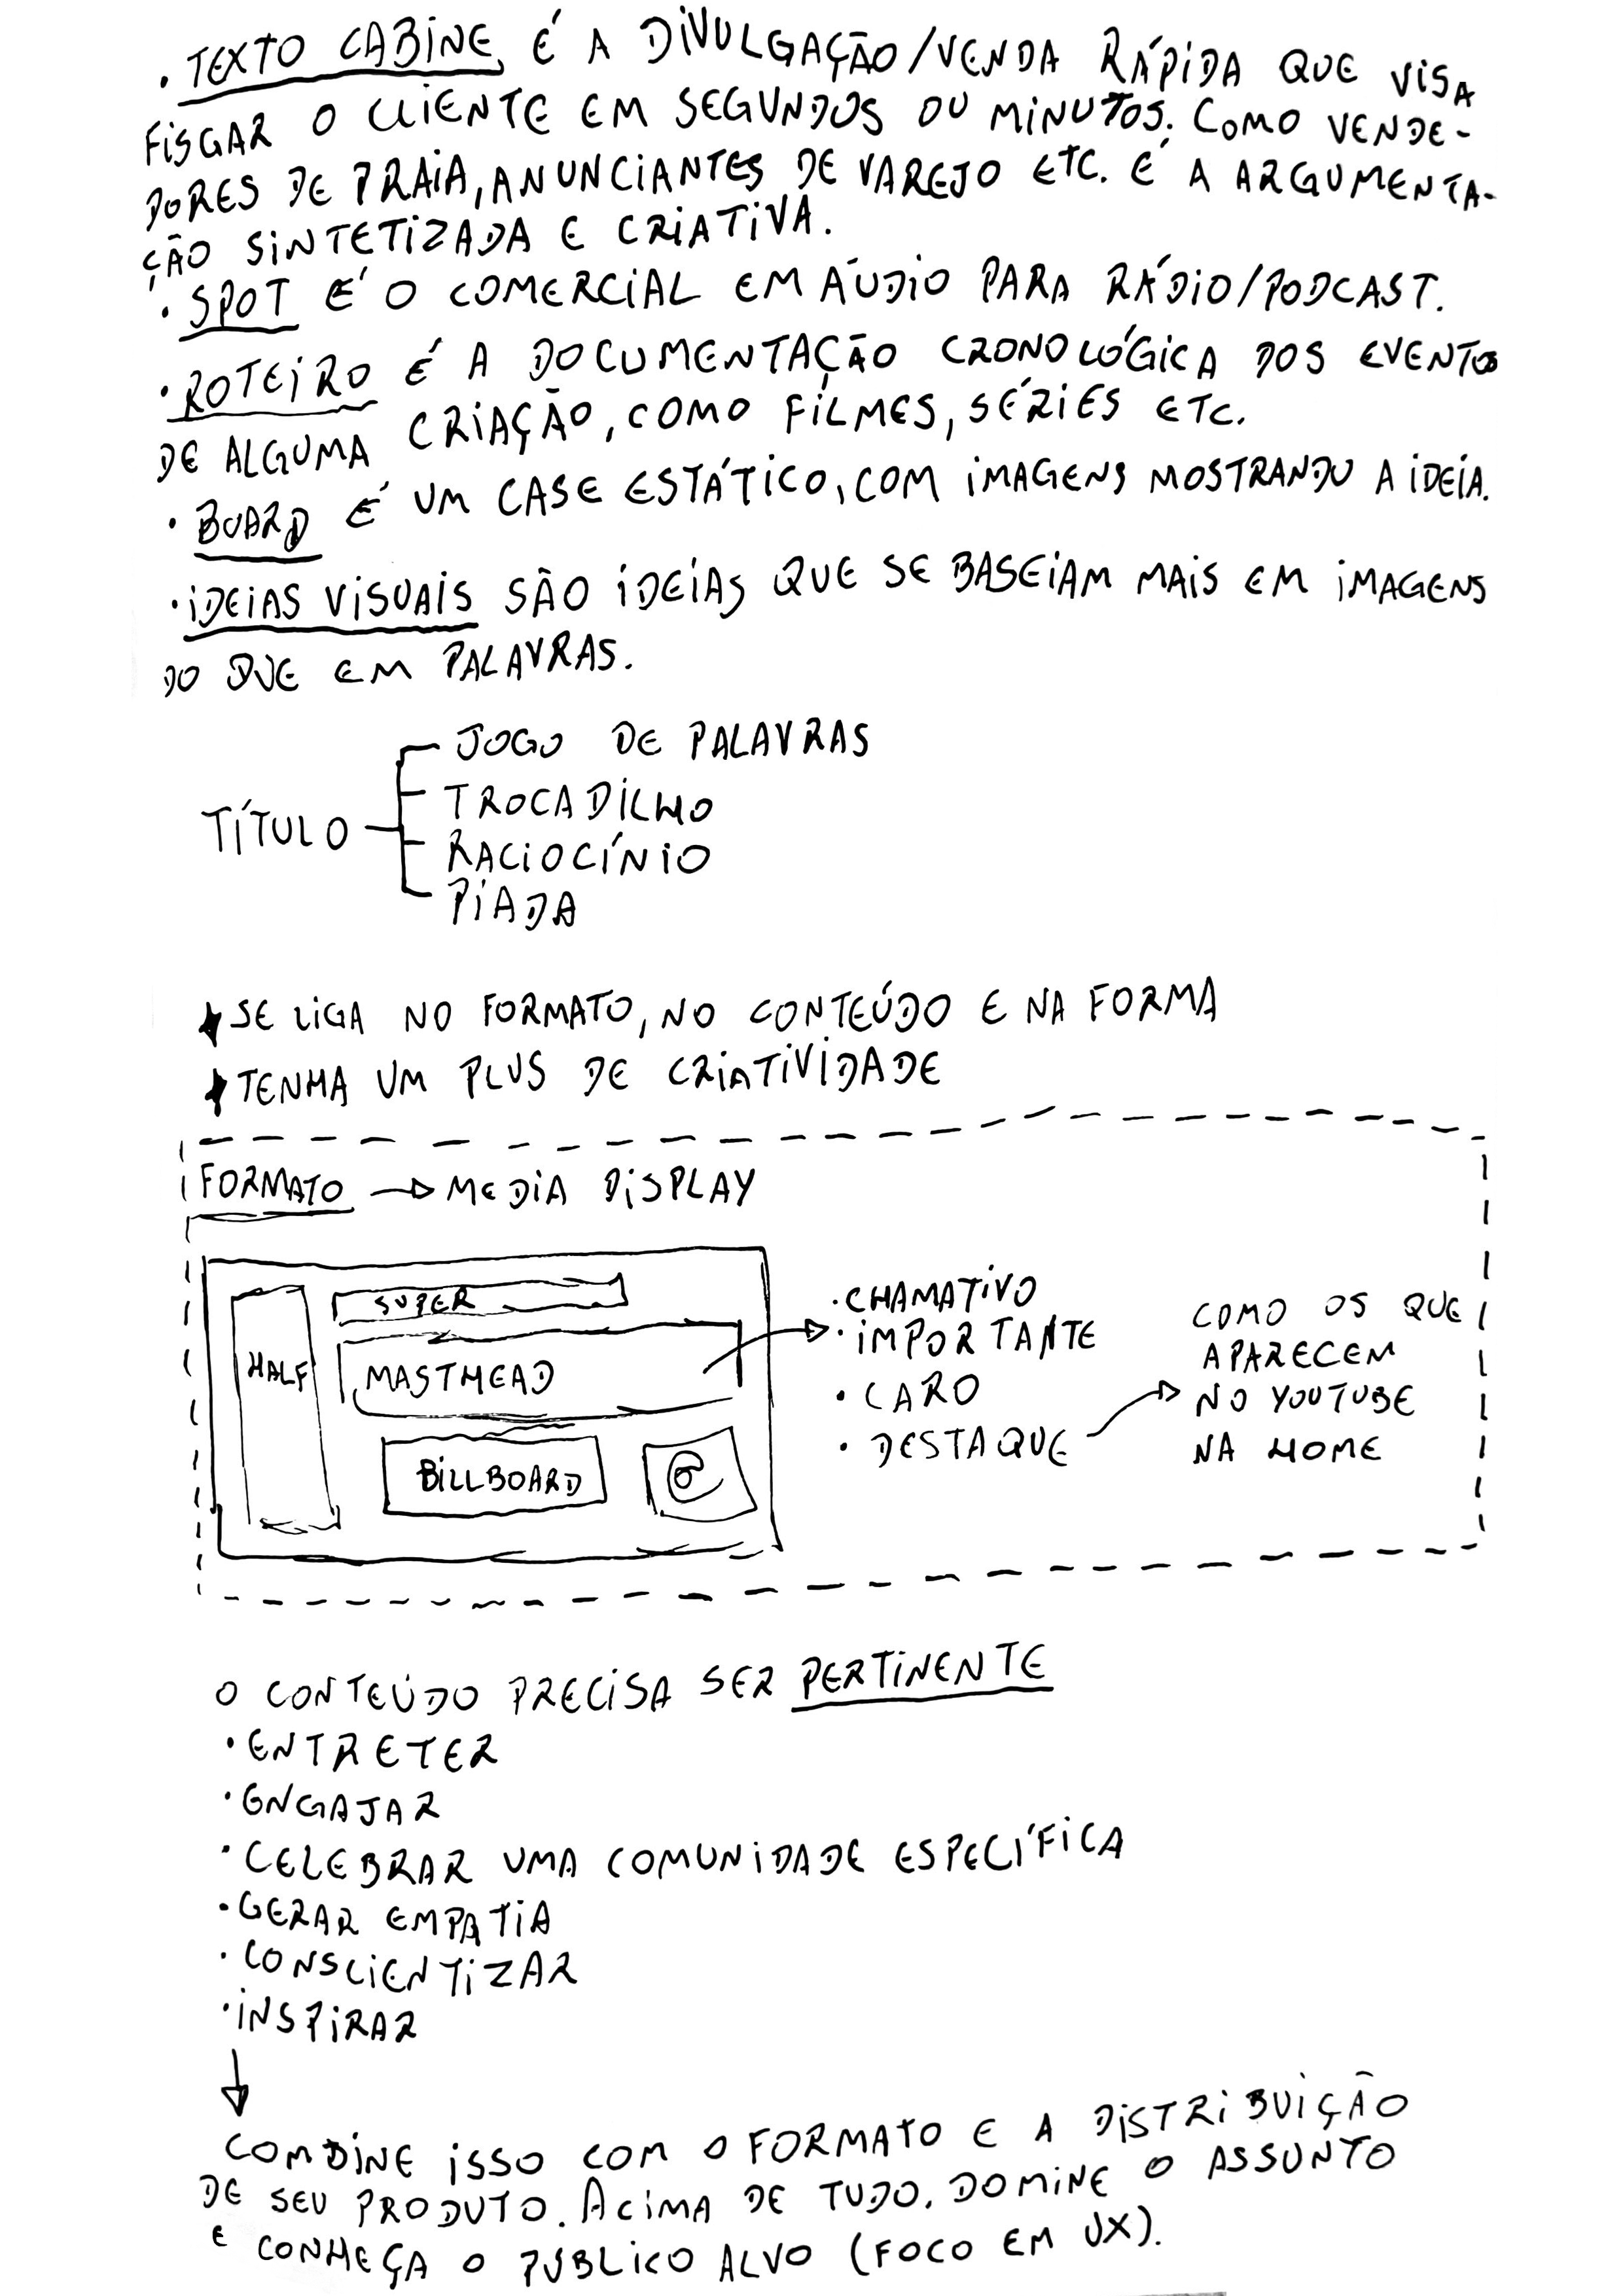 . TEXTO CABINE É A DIVULGAÇÃO/VENDA RÁPIDA QUE VISA
FISGAR O CLIENTE EM SEGUNDOS OU MINUTOS. COMO VENDE-
DORES DE PRAIA, ANUNCIANTES DE VAREJO ETC. É A ARGUMENTA-
ÇÃO SINTETIZADA E CRIATIVA.
. SPOT É O COMERCIAL EM ÁUDIO PARA RÁDIO/PODCAST.
. ROTEIRO É A DOCUMENTAÇÃO CRONOLÓGICA DOS EVENTOS
DE ALGUMA CRIAÇÃO, COMO FILMES, SÉRIES ETC.
. BOARD É UM CASE ESTÁTICO, COM IMAGENS MOSTRANDO A IDEIA.
. IDEIAS VISUAIS SÃO IDEIAS QUE SE BASEIAM MAIS EM IMAGENS
DO QUE EM PALAVRAS.
TÍTULO
JOGO DE PALAVRAS
TROCADILHO
RACIOCÍNIO
PIADA
SE LIGA NO FORMATO, NO CONTEÚDO E NA FORMA
TENHA UM PLUS DE CRIATIVIDADE
FORMATO → MEDIA DISPLAY
HALF
SUPER
MASTHEAD
BILLBOARD
. CHAMATIVO
. IMPORTANTE
. CARO
. DESTAQUE
COMO OS QUE
APARECEM
NO YOUTUBE
NA HOME
O CONTEÚDO PRECISA SER PERTINENTE
. ENTRETER
. ENGAJAR
. CELEBRAR UMA COMUNIDADE ESPECÍFICA
. GERAR EMPATIA
. CONSCIENTIZAR
. INSPIRAR
COMBINE ISSO COM O FORMATO E A DISTRIBUIÇÃO
DE SEU PRODUTO. ACIMA DE TUDO, DOMINE O ASSUNTO
E CONHEÇA O PÚBLICO ALVO (FOCO EM UX).